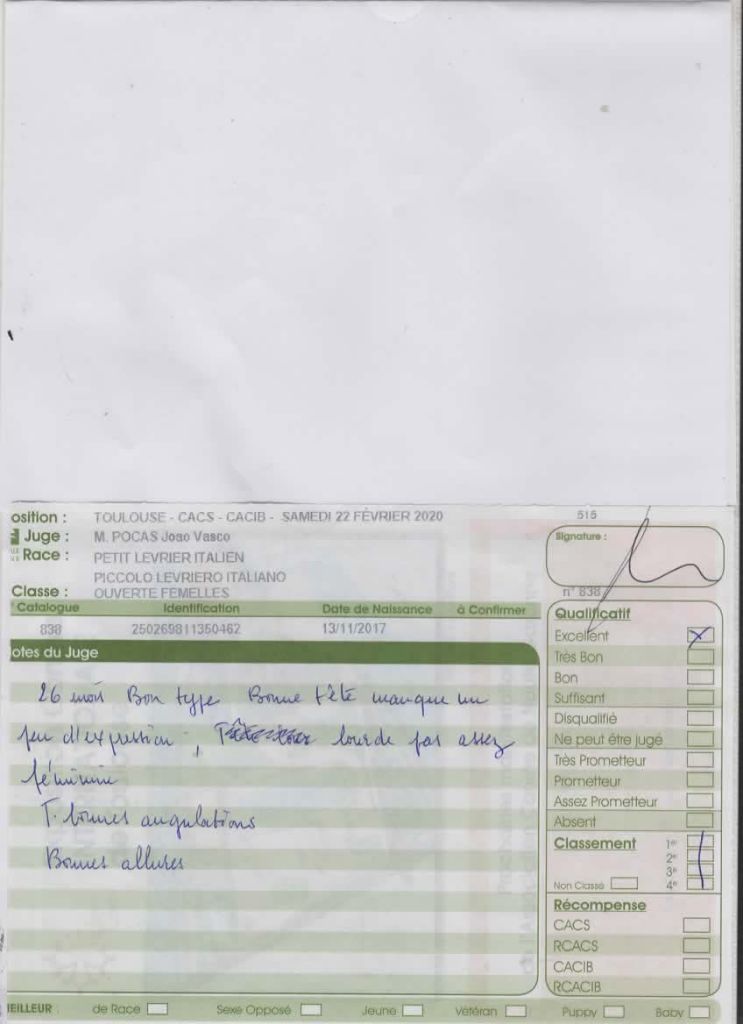 osition : TOULOUSE - CACS - CACIB - SAMEDI 22 FÉVRIER 2020 515
Juge : M. POCAS Joao Vasco
Signature :
Race : PETIT LEVRIER ITALIEN
PICCOLO LEVRIERO ITALIANO
Classe : OUVERTE FEMELLES n° 838
Catalogue Identification Date de Naissance à Confirmer
838 250269811350462 13/11/2017
otes du Juge
26 mois Bon type Bonne tête manque un
peu d'expression, lourde pas assez
féminine
T. bonnes angulations
Bonnes allures
Qualificatif
Excellent
Très Bon
Bon
Suffisant
Disqualifié
Ne peut être jugé
Très Prometteur
Prometteur
Assez Prometteur
Absent
Classement 1er
2e
3e
Non Classé 4e
Récompense
CACS
RCACS
CACIB
RCACIB
EILLEUR : de Race Sexe Opposé Jeune Vétéran Puppy Baby